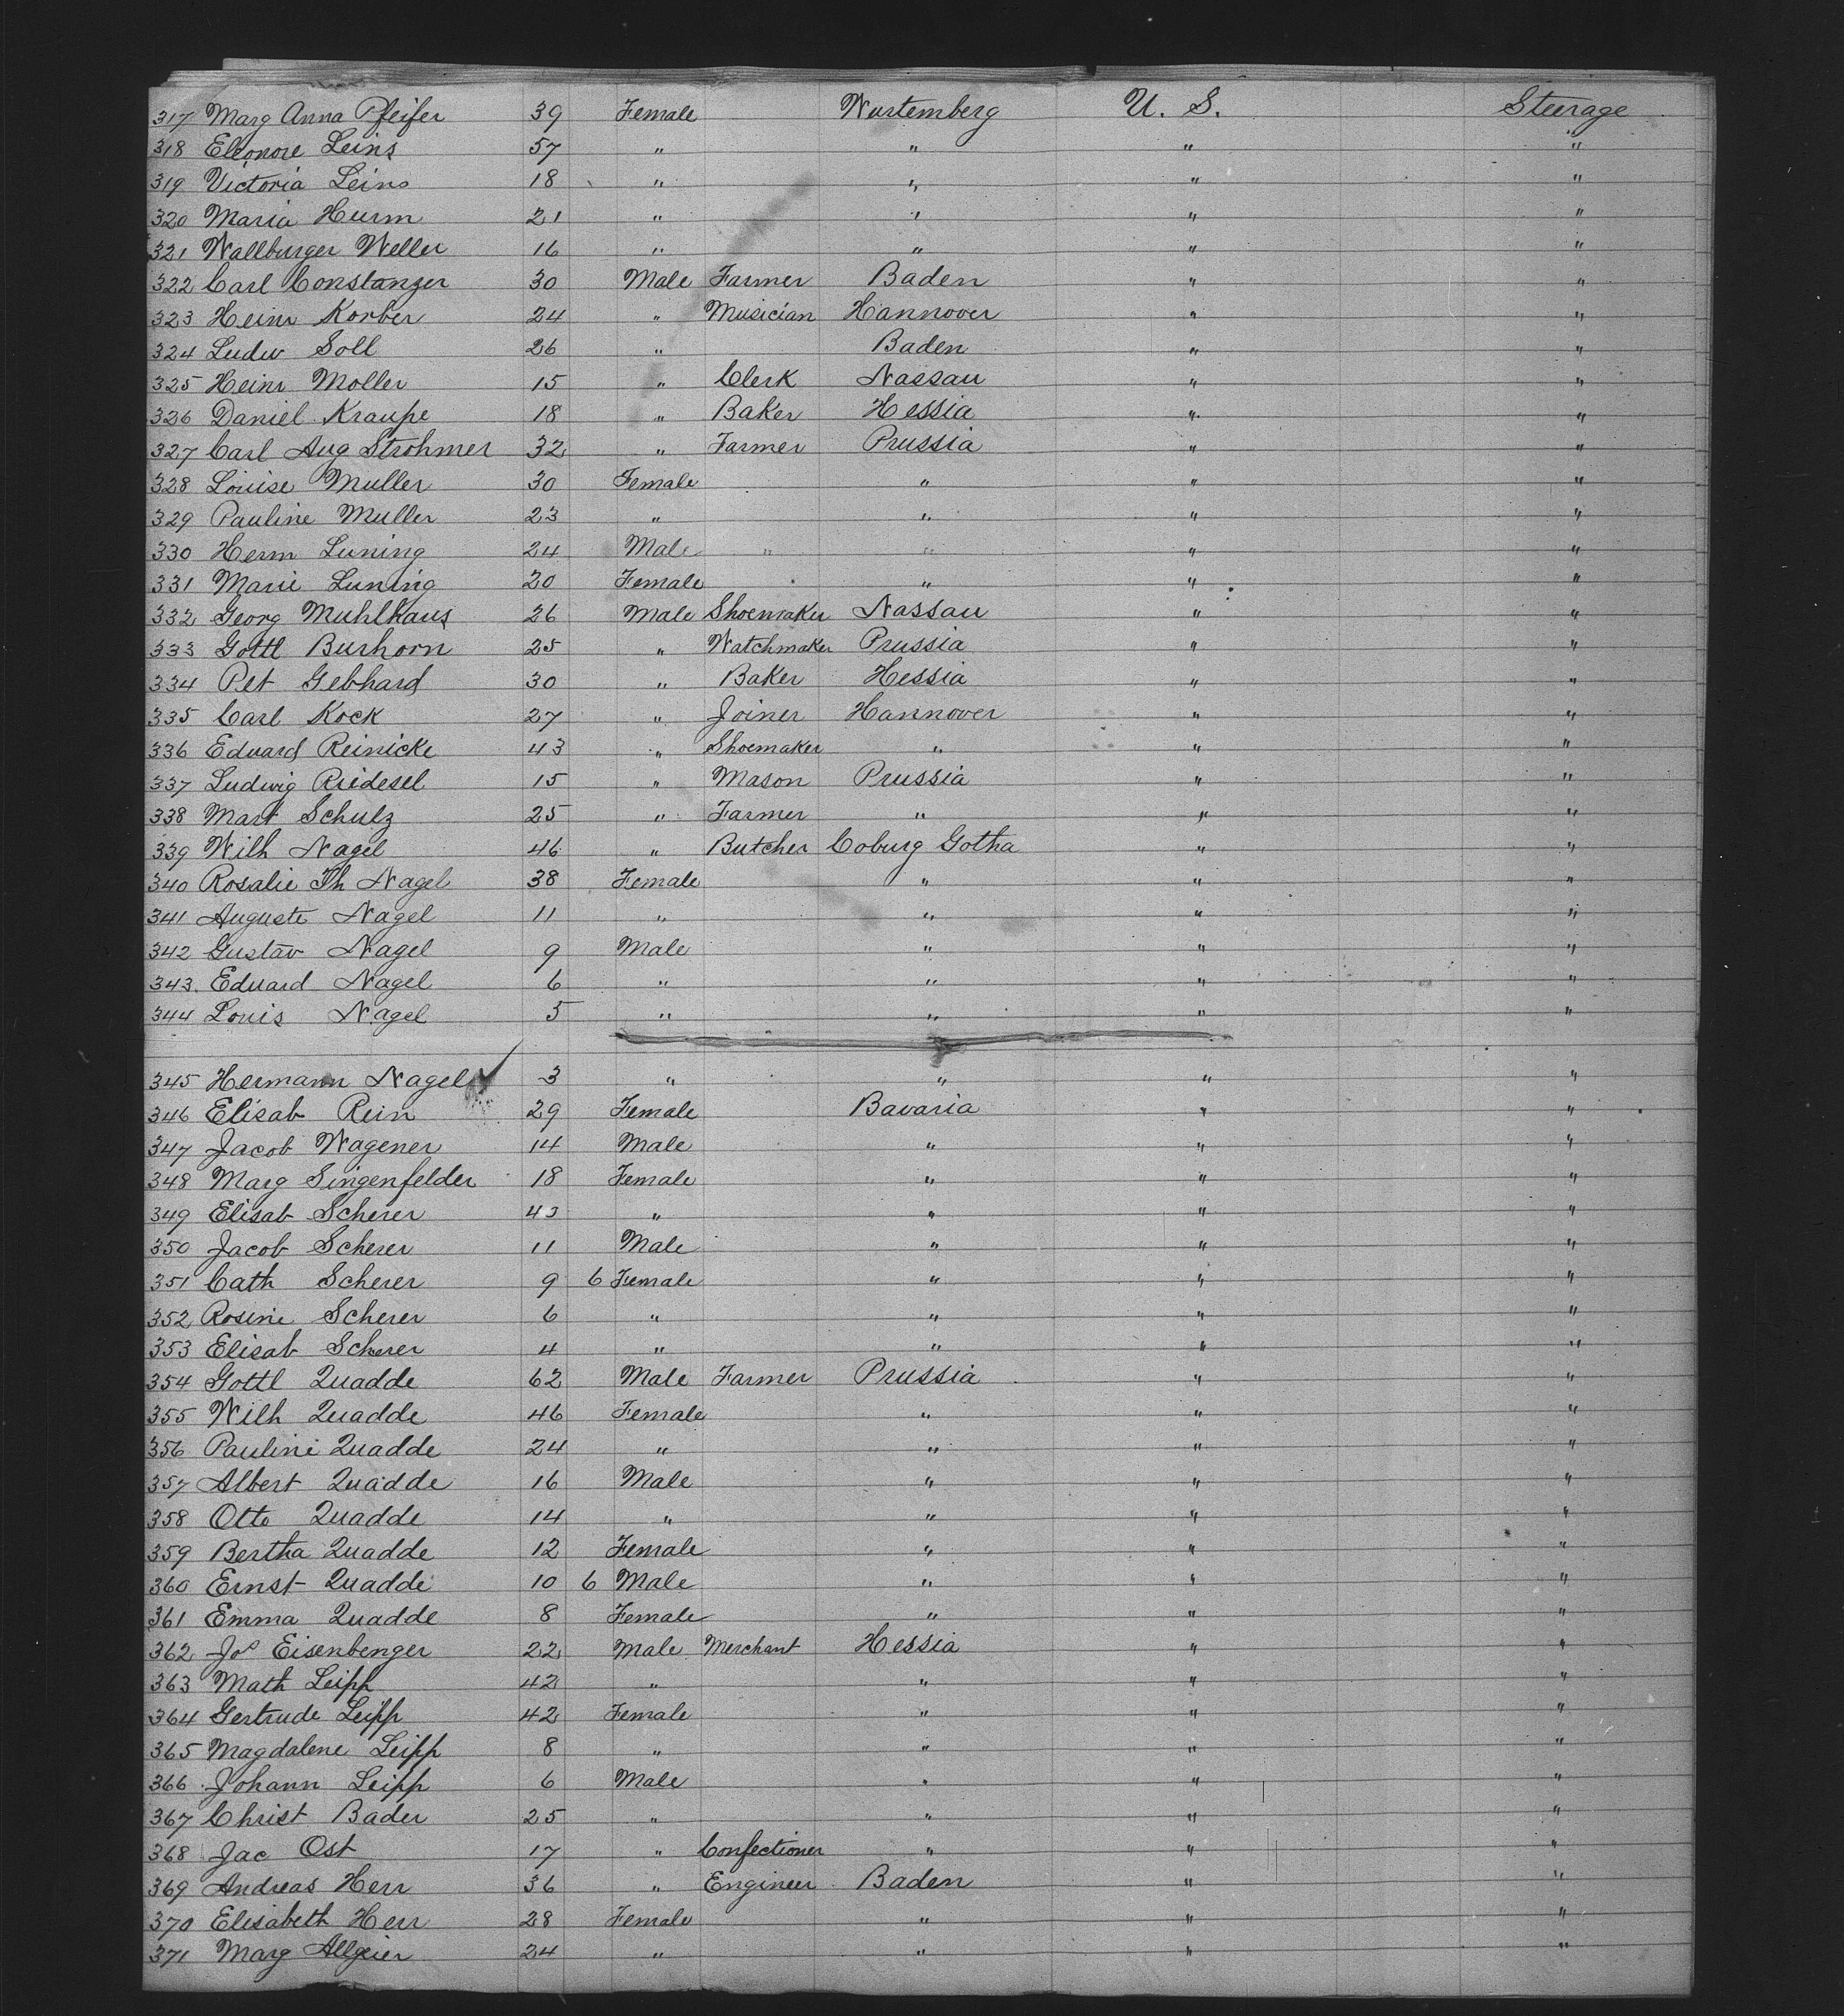 317 Marg Anna Pfeifer 39 Female Wurtemberg U. S. Steerage
318 Eleonore Leins 57 " " " "
319 Victoria Leins 18 " " " "
320 Maria Hurm 21 " " " "
321 Wallburger Weller 16 " " " "
322 Carl Constanzer 30 Male Farmer Baden " "
323 Heinr Korber 24 " Musician Hannover " "
324 Ludw Soll 26 " Baden " "
325 Heinr Moller 15 " Clerk Nassau " "
326 Daniel Kraupe 18 " Baker Hessia " "
327 Carl Aug Strohmer 32 " Farmer Prussia " "
328 Louise Muller 30 Female " " "
329 Pauline Muller 23 " " " "
330 Herm Luning 24 Male " " " "
331 Marie Luning 20 Female " " "
332 Georg Muhlhaus 26 Male Shoemaker Nassau " "
333 Gottl Burhorn 25 " Watchmaker Prussia " "
334 Pet Gebhard 30 " Baker Hessia " "
335 Carl Kock 27 " Joiner Hannover " "
336 Eduard Reinicke 43 " Shoemaker " " "
337 Ludwig Riedesel 15 " Mason Prussia " "
338 Mart Schulz 25 " Farmer " " "
339 Wilh Nagel 46 " Butcher Coburg Gotha " "
340 Rosalie Th Nagel 38 Female " " "
341 Auguste Nagel 11 " " " "
342 Gustav Nagel 9 Male " " "
343 Eduard Nagel 6 " " " "
344 Louis Nagel 5 " " " "
345 Hermann Nagel 3 " " " "
346 Elisab Rein 29 Female Bavaria " "
347 Jacob Wagener 14 Male " " "
348 Marg Singenfelder 18 Female " " "
349 Elisab Scherer 43 " " " "
350 Jacob Scherer 11 Male " " "
351 Cath Scherer 9 6 Female " " "
352 Rosine Scherer 6 " " " "
353 Elisab Scherer 4 " " " "
354 Gottl Quadde 62 Male Farmer Prussia " "
355 Wilh Quadde 46 Female " " "
356 Pauline Quadde 24 " " " "
357 Albert Quadde 16 Male " " "
358 Otto Quadde 14 " " " "
359 Bertha Quadde 12 Female " " "
360 Ernst Quadde 10 6 Male " " "
361 Emma Quadde 8 Female " " "
362 Jos Eisenbenger 22 Male Merchant Hessia " "
363 Math Leipp 42 " " " "
364 Gertrude Leipp 42 Female " " "
365 Magdalene Leipp 8 " " " "
366 Johann Leipp 6 Male " " "
367 Christ Bader 25 " " " "
368 Jac Ost 17 " Confectioner " " "
369 Andreas Herr 36 " Engineer Baden " "
370 Elisabeth Herr 28 Female " " "
371 Marg Allgeier 24 " " " "